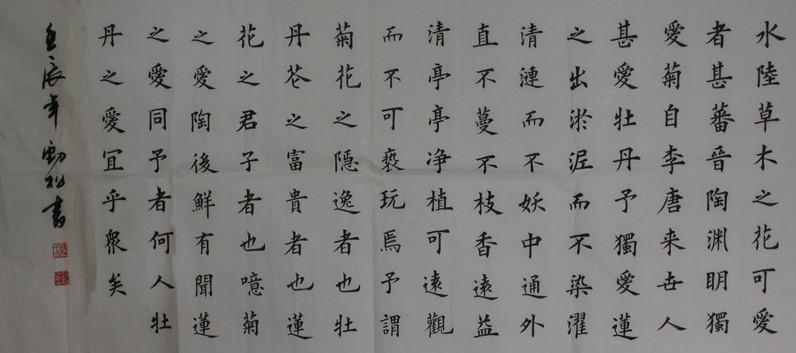 水陸草木之花可愛
者甚蕃晉陶渊明獨
愛菊自李唐来世人
甚愛牡丹予獨愛蓮
之出淤泥而不染濯
清漣而不妖中通外
直不蔓不枝香遠益
清亭亭净植可遠觀
而不可褻玩焉予謂
菊花之隱逸者也牡
丹花之富貴者也蓮
花之君子者也噫菊
之愛陶後鮮有聞蓮
之愛同予者何人牡
丹之愛宜乎眾矣
壬辰年勁松書